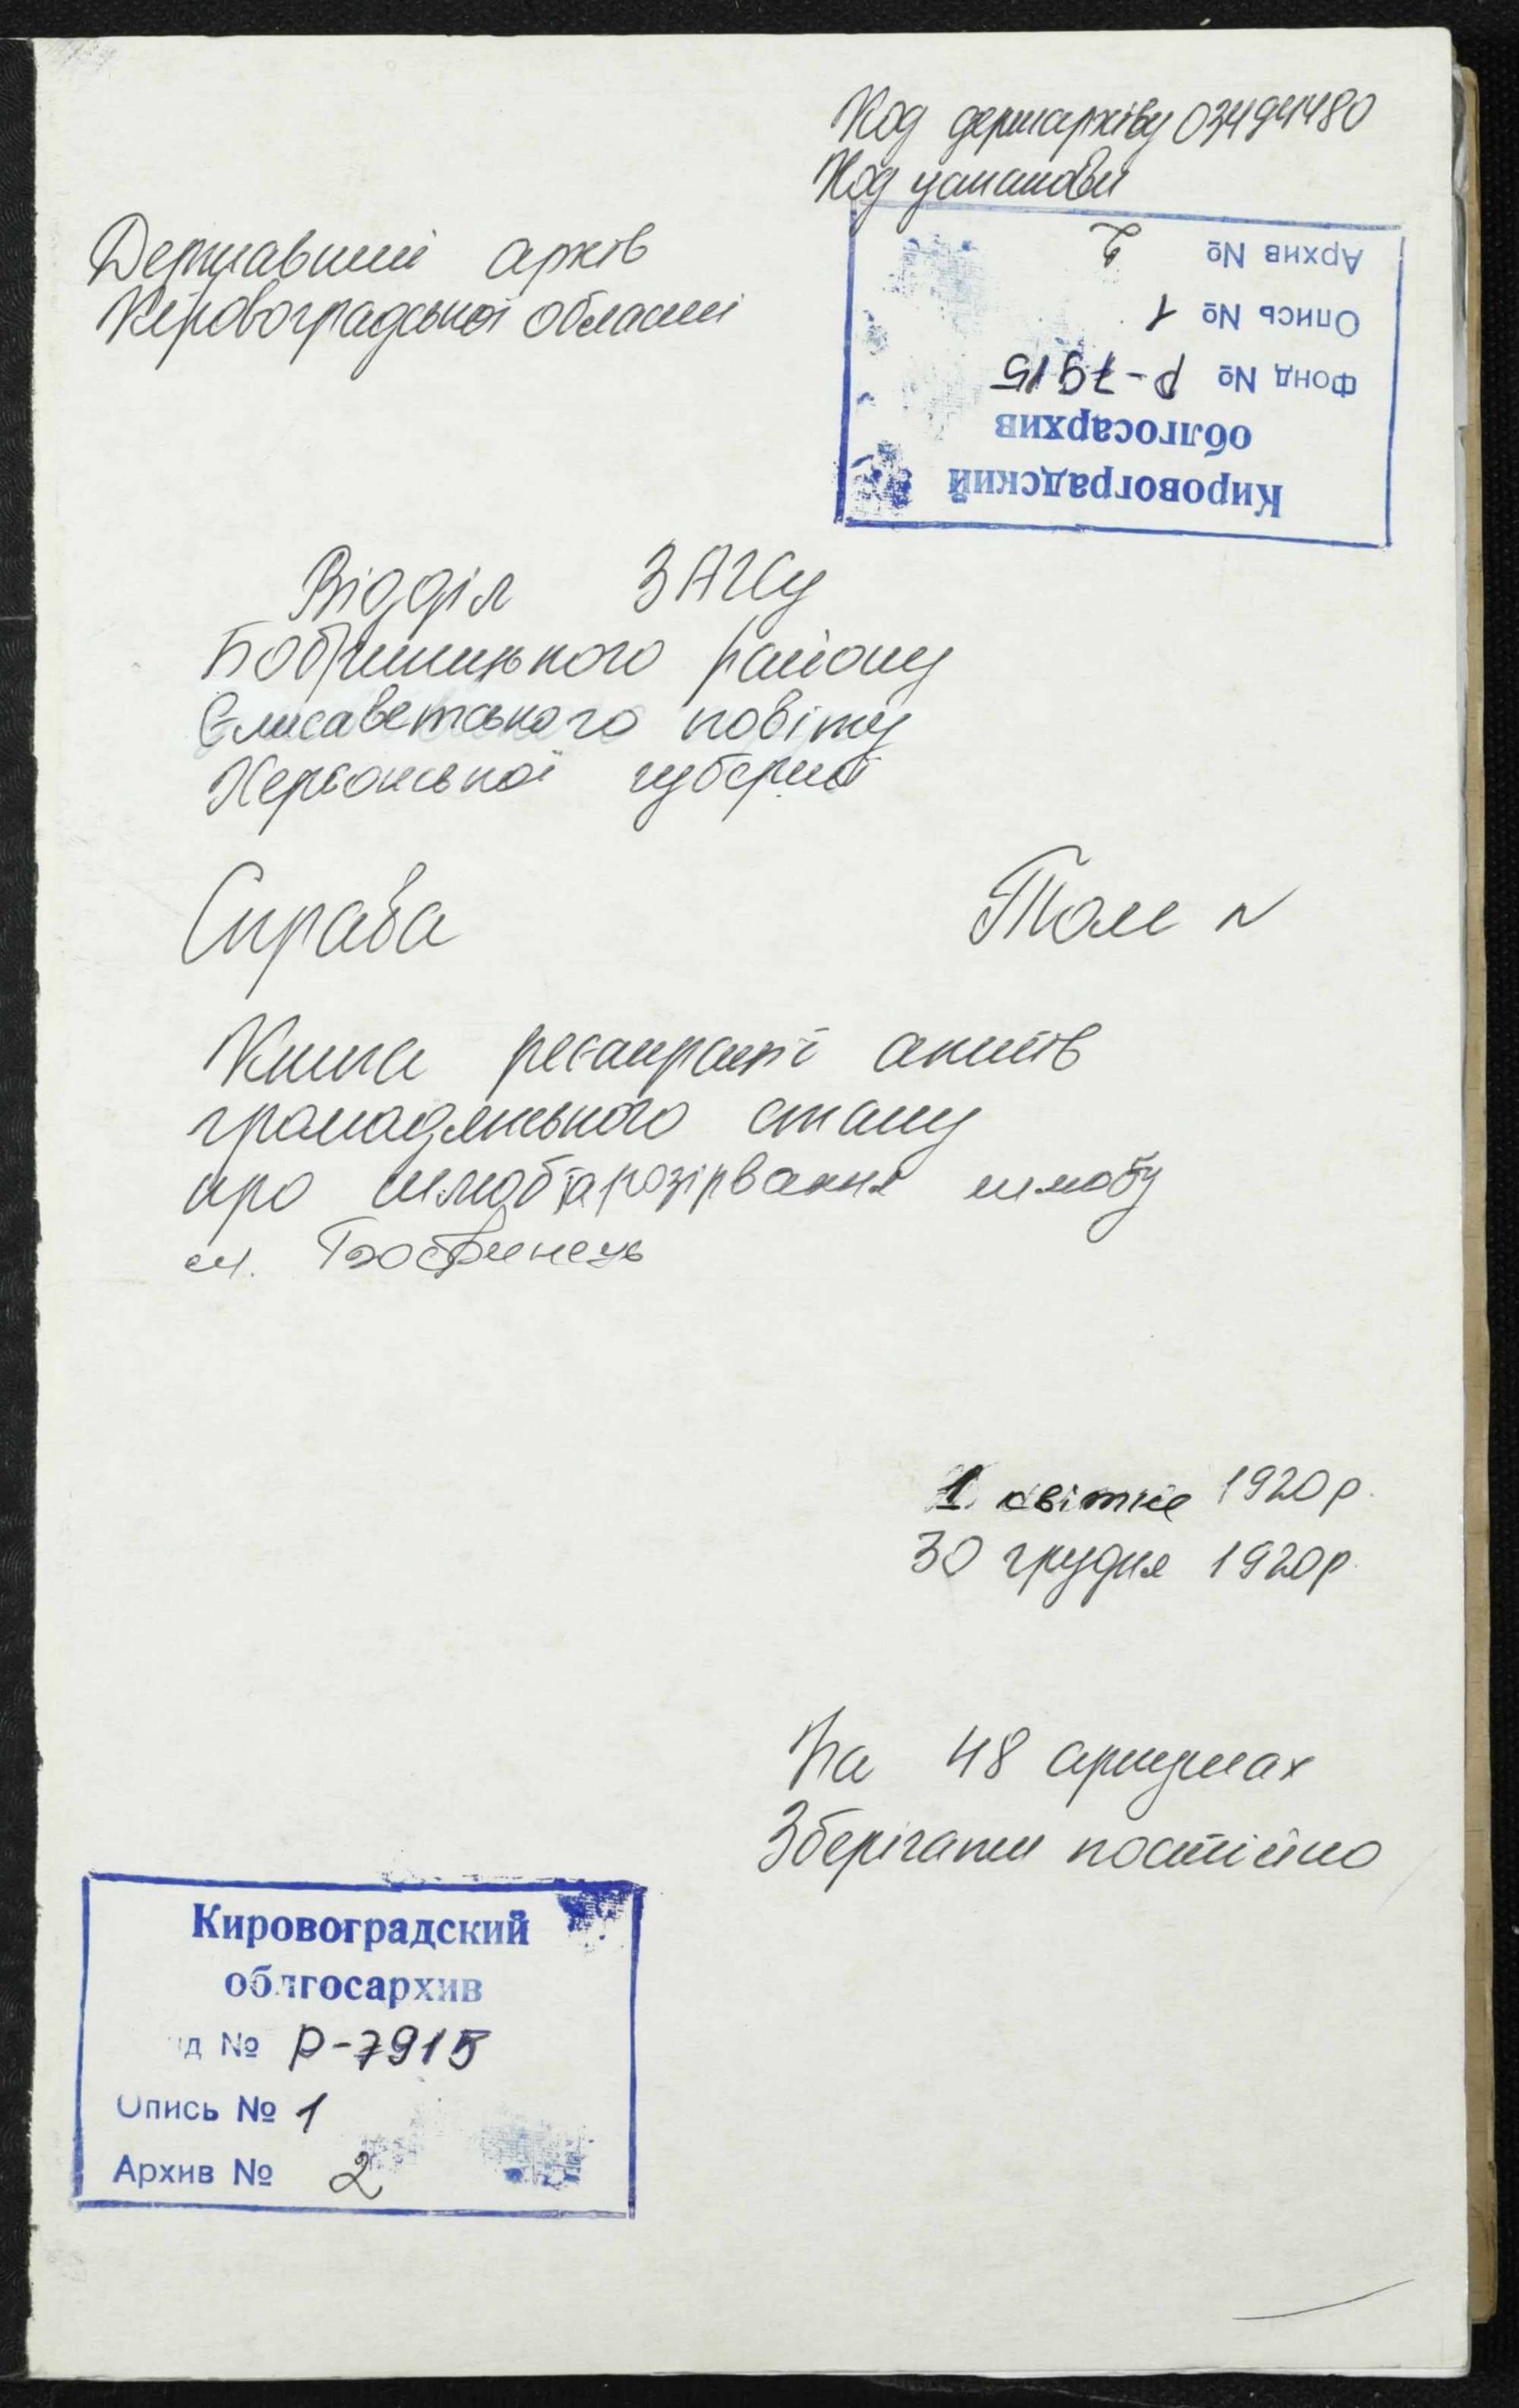 Код держархіву 03494480
Код установи
Державний архів
Кіровоградської області
Кировоградский
облгосархив
Фонд № Р-7915
Опись № 1
Архив № 2
Відділ ЗАГСу
Бобринецького району
Єлисаветського повіту
Херсонської губернії
Справа Том N
Книга реєстрації актів
громадянського стану
про шлюб та розірвання шлюбу
м. Бобринець
1 квітня 1920 р.
30 грудня 1920 р.
На 48 аркушах
Зберігати постійно
Кировоградский
облгосархив
нд № Р-7915
Опись № 1
Архив № 2